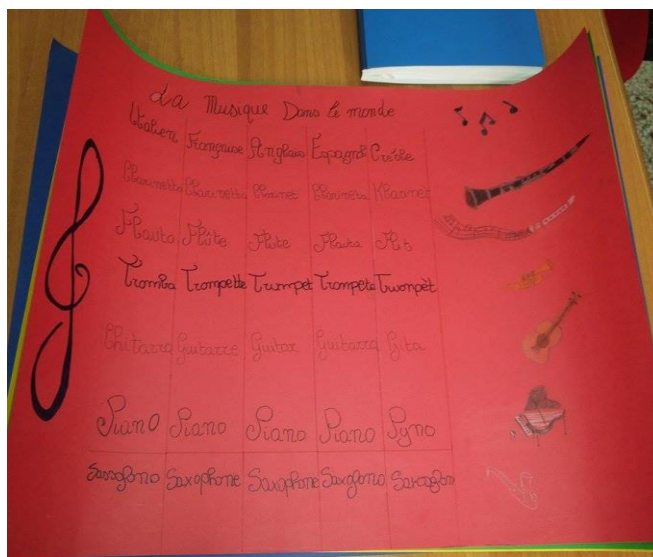 La Musique Dans le monde
Italien Française Anglais Espagnol Créole
Clarinetto Clarinette Clarinet Clarinete Klarinet
Flauto Flûte Flute Flauta Flit
Tromba Trompette Trumpet Trompeta Twonpèt
Chitarra Guitarre Guitar Guitarra Gita
Piano Piano Piano Piano Pyno
Sassofono Saxophone Saxophone Saxofono